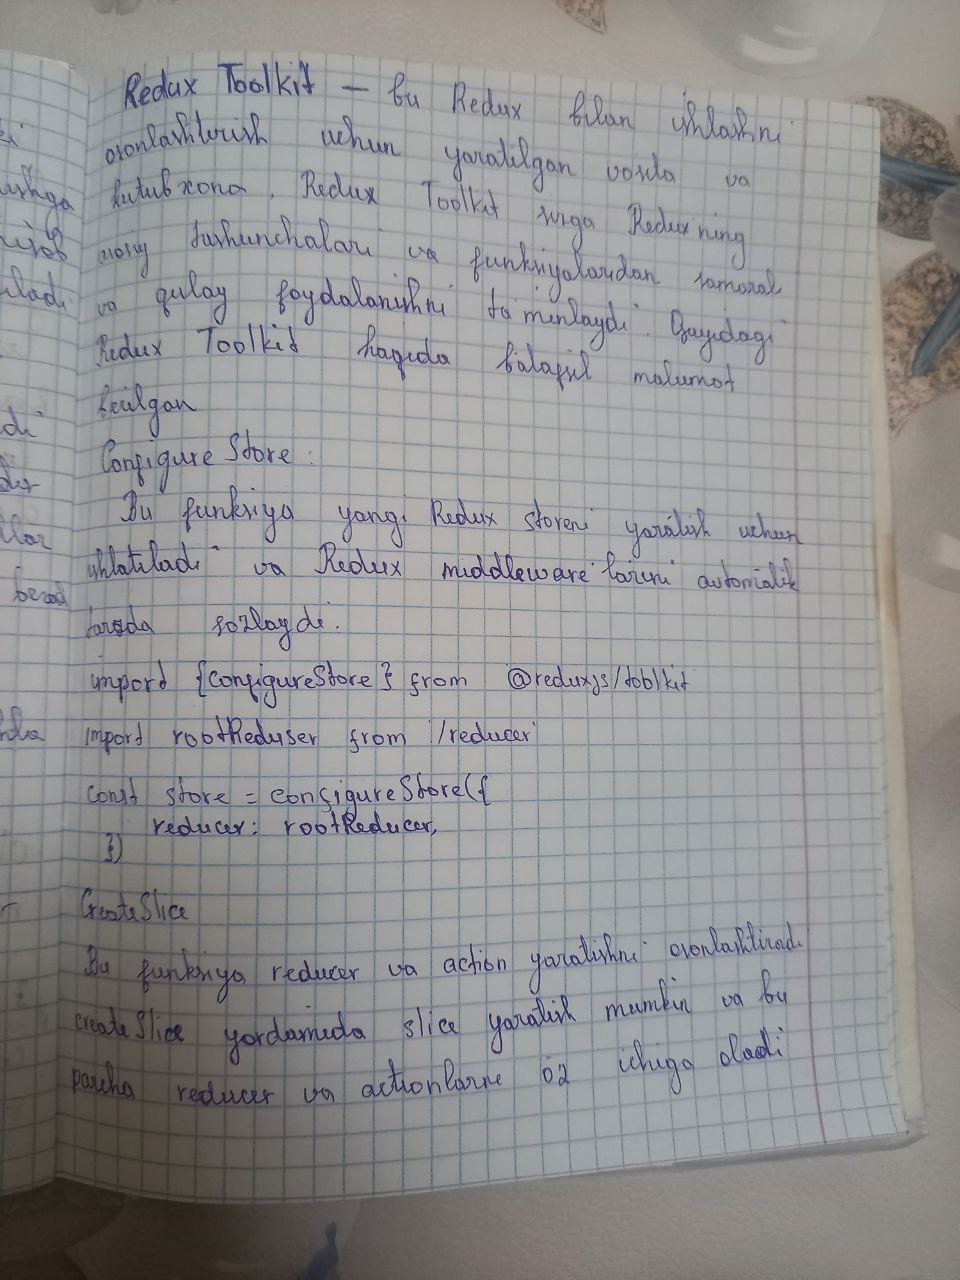 Redux Toolkit – bu Redux bilan ishlashni
osonlashtirish uchun yaratilgan vosita va
kutubxona. Redux Toolkit sizga Reduxning
asosiy tushunchalari va funksiyalaridan samarali
va qulay foydalanishni ta'minlaydi. Quyidagi
Redux Toolkit haqida batafsil malumot
berilgan
Configure Store:
Bu funksiya yangi Redux storeni yaratish uchun
ishlatiladi va Redux middleware larini automatik
tarzda sozlaydi.
import {configureStore} from @reduxjs/toolkit
import rootReduser from '/reducer'
const store = configureStore({
reducer: rootReducer,
})
CreateSlice
Bu funksiya reducer va action yaratishni osonlashtiradi
createSlice yordamida slice yaratish mumkin va bu
parcha reducer va actionlarni öz ichiga oladi